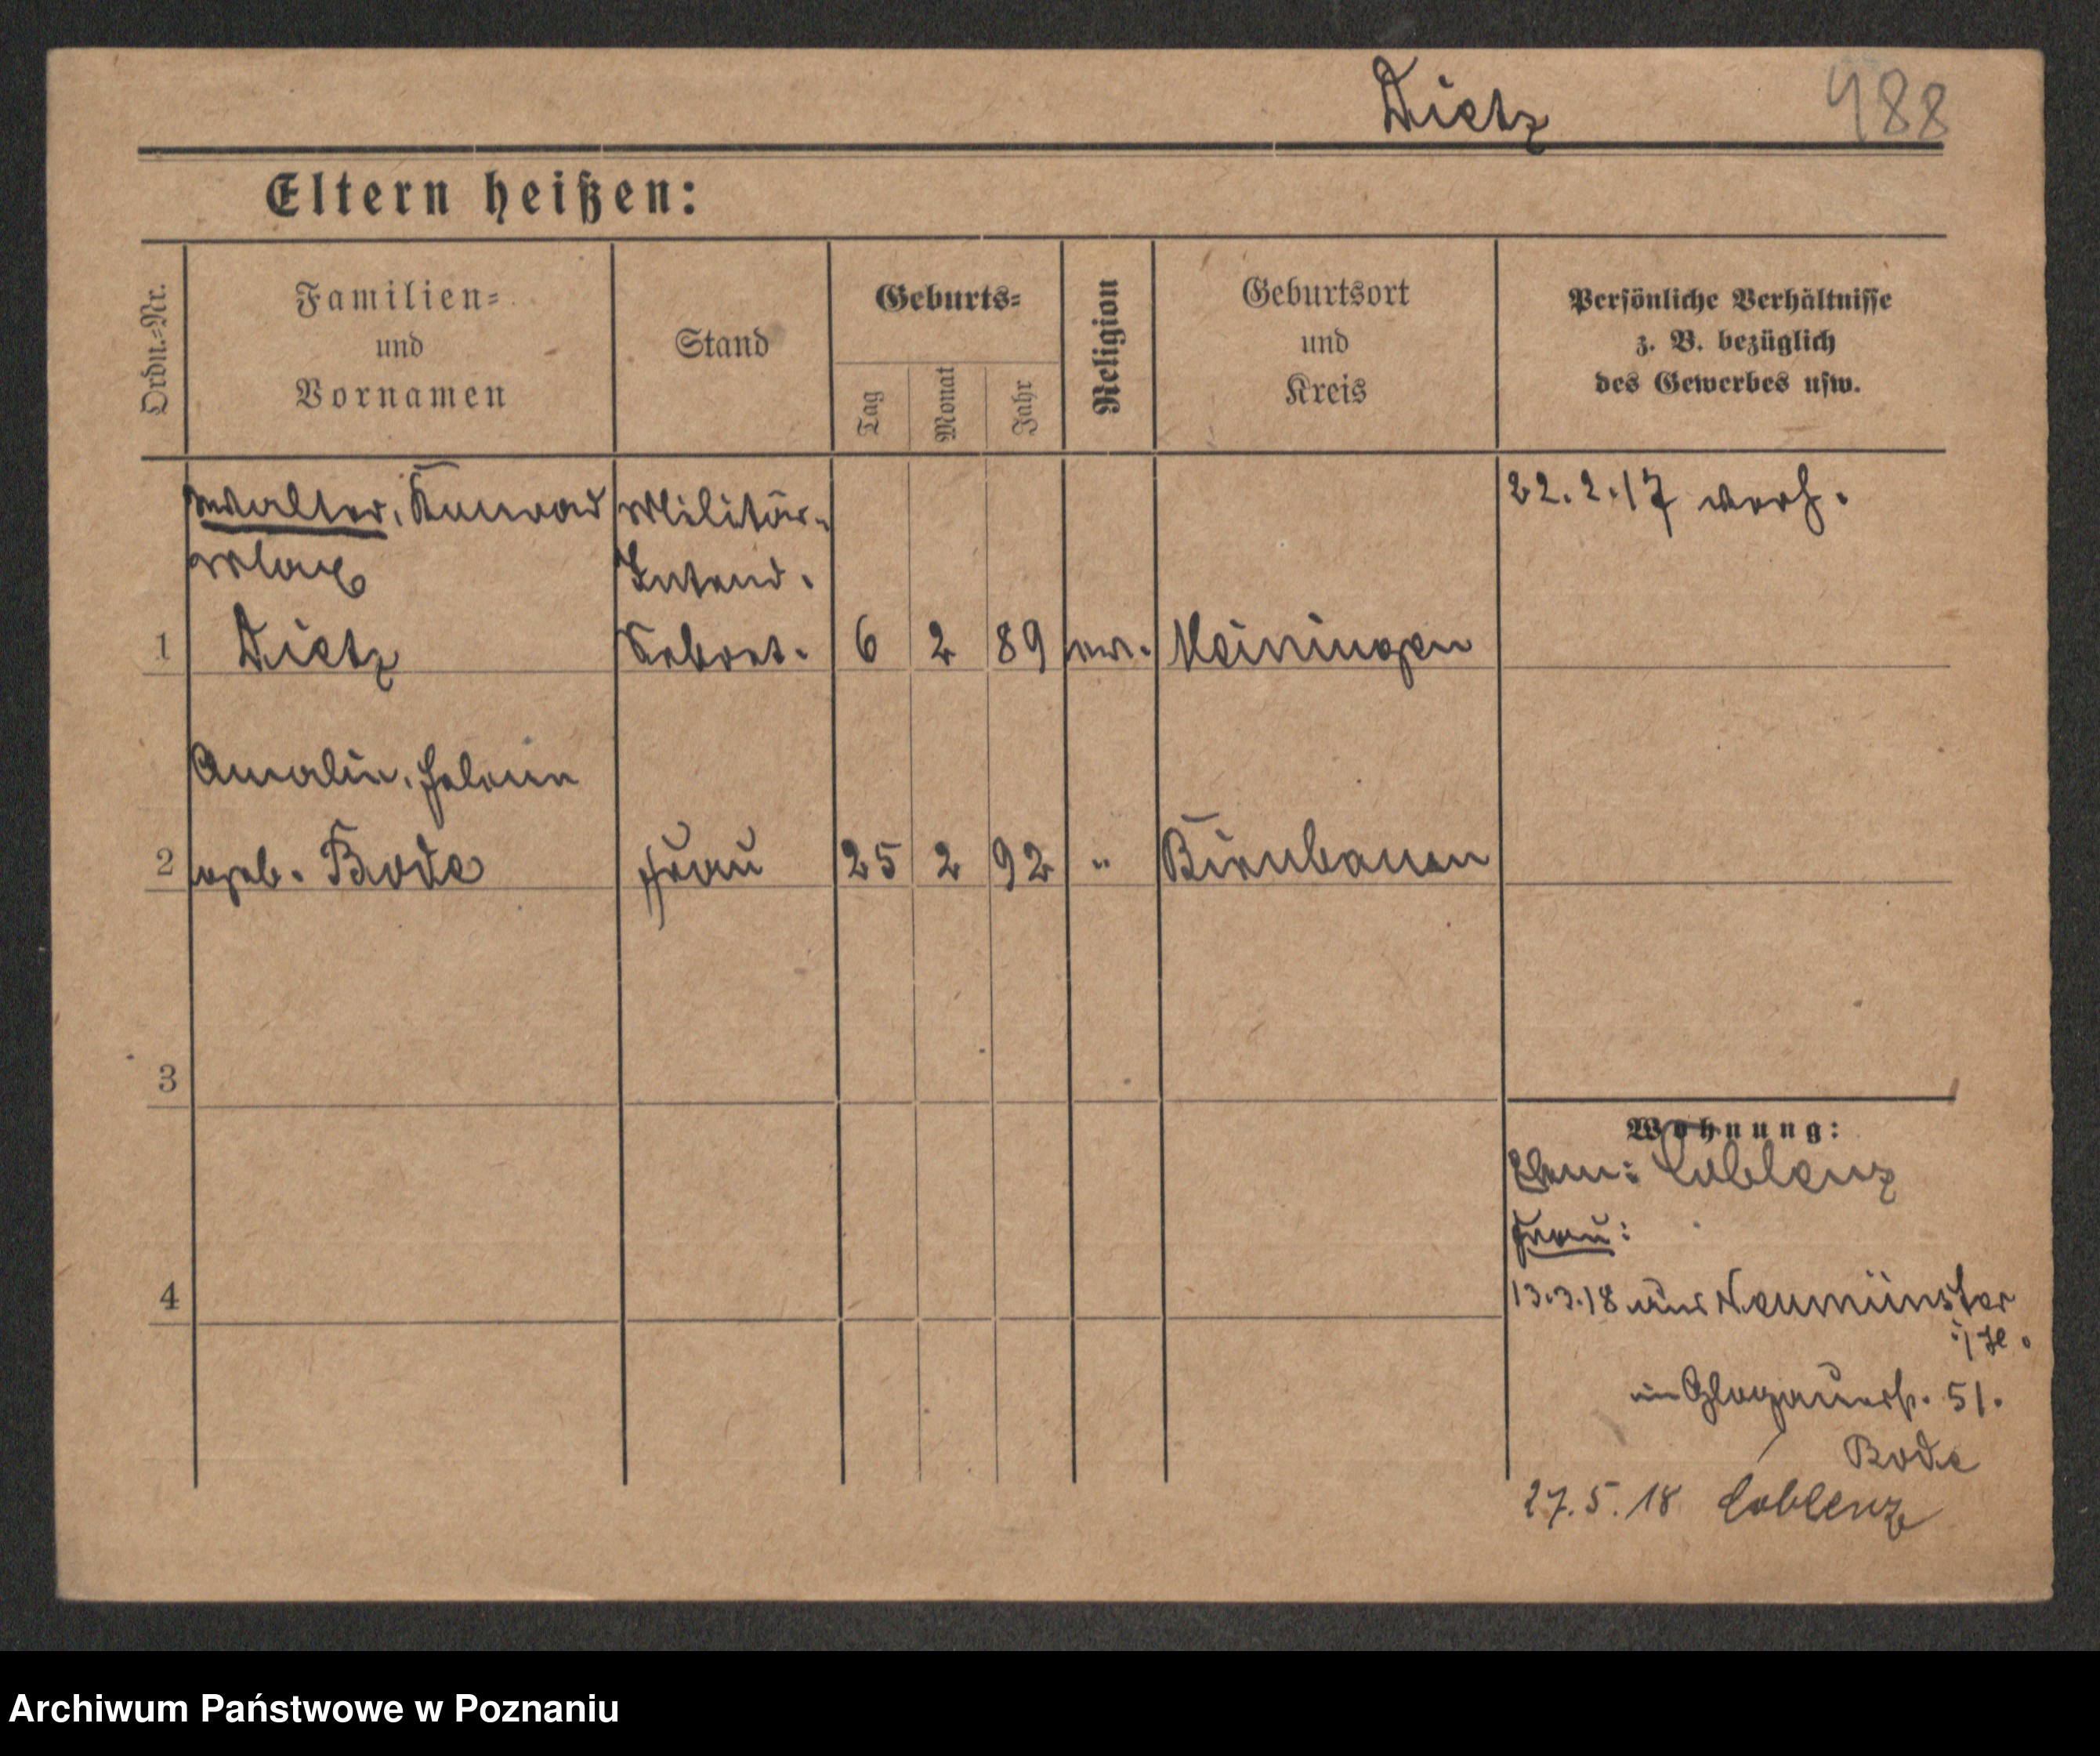 Dietz 488
Eltern heißen:
Ordn.-Nr.
Familien-
und
Vornamen
Stand
Geburts-
Tag
Monat
Jahr
Religion
Geburtsort
und
Kreis
Persönliche Verhältnisse
z. B. bezüglich
des Gewerbes usw.
Walter, Konrad Militär- 22.2.17 verh.
Max Intend.
1 Dietz Sekret. 6 2 89 ev. Meiningen
Amalie, Helene
2 geb. Bode Frau 25 2 92 " Birnbaum
3
Wohnung:
Coblenz
Frau:
4 13.3.18 aus Neumünster
i/H.
in Glogauerstr. 51.
Bode
27.5.18 Coblenz
Archiwum Państwowe w Poznaniu